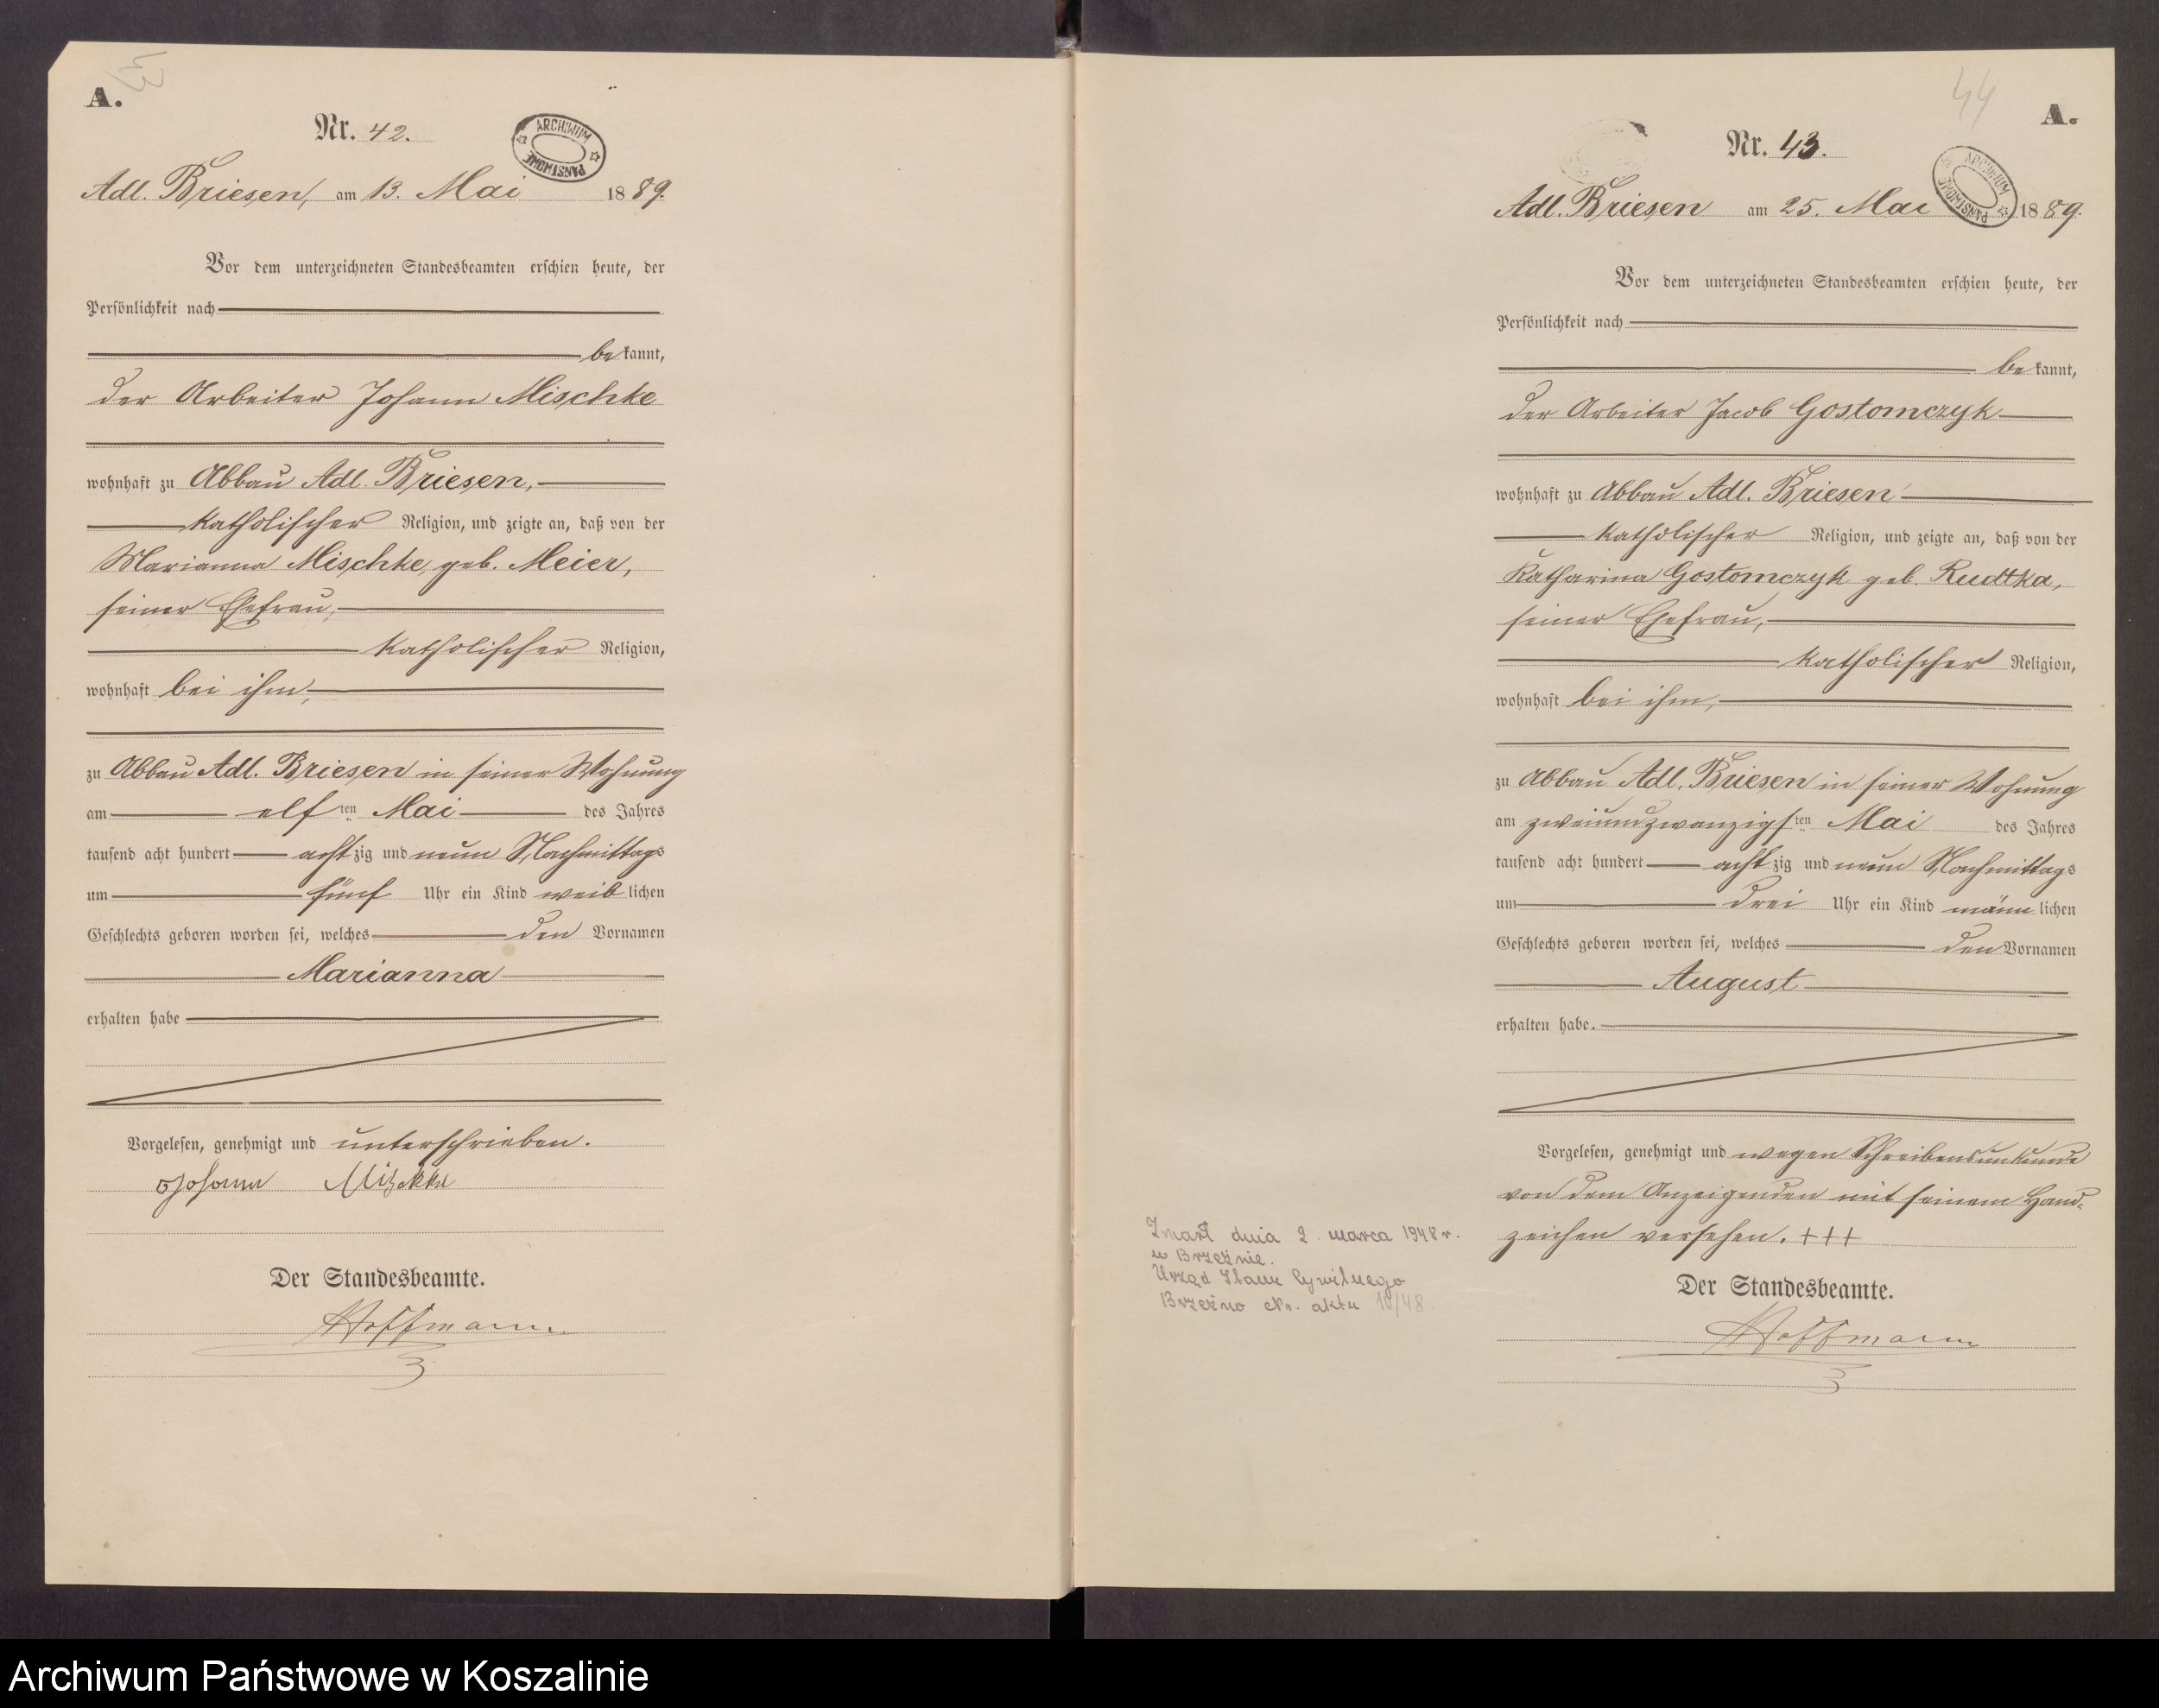 A.
Nr. 42.
ARCHIWUM PAŃSTWOWE
Adl. Briesen, am 13. Mai 1889.
Vor dem unterzeichneten Standesbeamten erschien heute, der
Persönlichkeit nach
bekannt,
der Arbeiter Johann Mischke
wohnhaft zu Abbau Adl. Briesen,
katholischer Religion, und zeigte an, daß von der
Marianna Mischke, geb. Meier,
seiner Ehefrau,
katholischer Religion,
wohnhaft bei ihm,
zu Abbau Adl. Briesen in seiner Wohnung
am elften Mai des Jahres
tausend acht hundert achtzig und neun Nachmittags
um fünf Uhr ein Kind weiblichen
Geschlechts geboren worden sei, welches den Vornamen
Marianna
erhalten habe
Vorgelesen, genehmigt und unterschrieben.
Johann
Der Standesbeamte.
Hoffmann
44
A.
Nr. 43.
ARCHIWUM PAŃSTWOWE
Adl. Briesen am 25. Mai 1889.
Vor dem unterzeichneten Standesbeamten erschien heute, der
Persönlichkeit nach
bekannt,
der Arbeiter Jacob Gostomczyk
wohnhaft zu Abbau Adl. Briesen
katholischer Religion, und zeigte an, daß von der
Katharina Gostomczyk geb. Rudtka,
seiner Ehefrau,
katholischer Religion,
wohnhaft bei ihm,
zu Abbau Adl. Briesen in seiner Wohnung
am zweiundzwanzigsten Mai des Jahres
tausend acht hundert achtzig und neun Nachmittags
um drei Uhr ein Kind männlichen
Geschlechts geboren worden sei, welches den Vornamen
August
erhalten habe.
Vorgelesen, genehmigt und wegen Schreibensunkunde
von dem Anzeigenden mit seinem Hand-
zeichen versehen. +++
Der Standesbeamte.
Hoffmann
Zmarł dnia 2 marca 1948 r.
w Brzeźnie.
Urząd Stanu Cywilnego
Brzeźno Nr. aktu 10/48
Archiwum Państwowe w Koszalinie